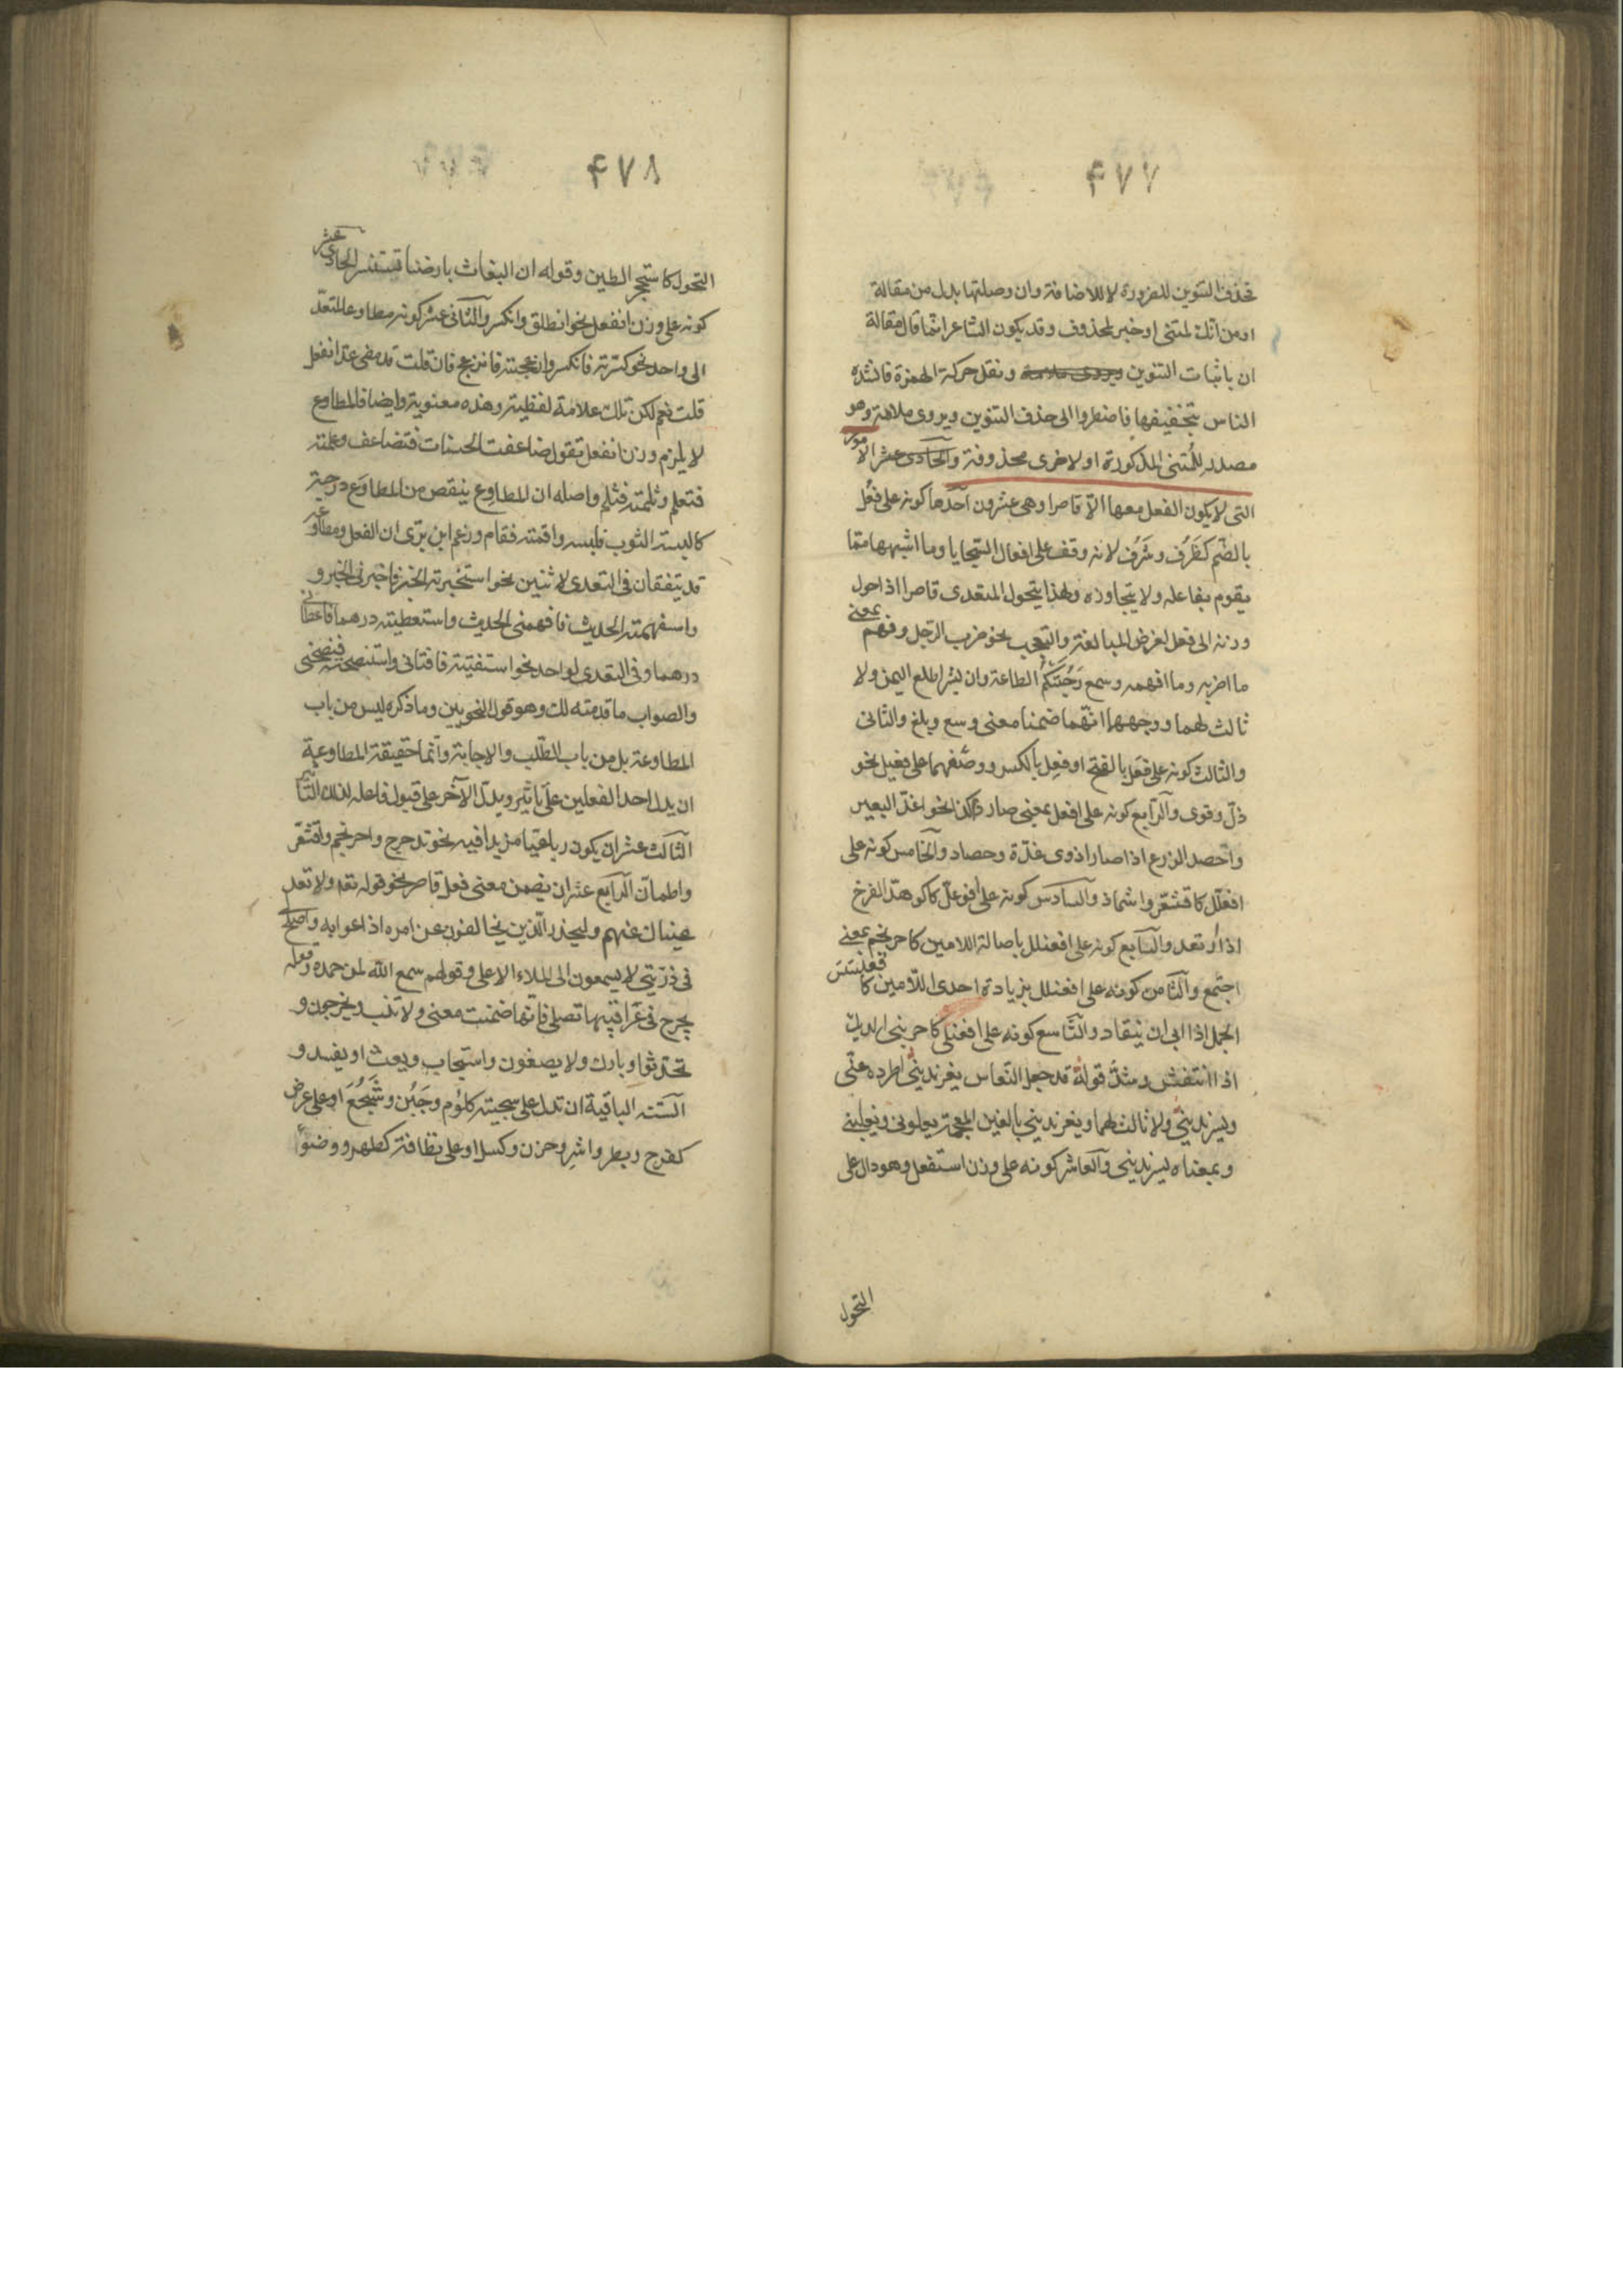 ۴۷۷
تحذف التنوين للضرورة لا للاضافة وان وصلتها بدل من مقالة
او من انك لمتنى او خبر لمحذوف وقد يكون الشاعر انما قال مقالة
ان باثبات التنوين ونقل حركة الهمزة فانشده
الناس بتخفيفها فاضطروا الى حذف التنوين ويروى ملامة وهو
مصدر للمتنى المذكورة او لاخرى محذوفة والحادى عشر الامور
التى لا يكون الفعل معها الّا قاصرا وهى عشرون احدها كونه على فعُل
بالضّم كظَرُف وشَرُف لانه وقف على افعال السّجايا وما اشبهها ممّا
يقوم بفاعله ولا يتجاوزه ولهذا يتحول المتعدى قاصرا اذا حول
وزنه الى فعل لغرض المبالغة والتعجب نحو ضرب الرّجل وفهم بمعنى
ما اضربه وما افهمه وسمع رَحُبَتْكُمُ الطاعة وان بشرا طلع اليمن ولا
ثالث لهما ووجههما انّهما ضمنا معنى وسع وبلغ والثانى
والثالث كونه على فعَل بالفتح او فعِل بالكسر ووصفهما على فعيل نحو
ذلّ وقوى والرّابع كونه على افعل بمعنى صار ذا كذا نحو اغدّ البعير
واحصد الزرع اذا صارا ذوى غدّة وحصاد والخامس كونه على
افعلّل كاقشعرّ واشمأذ والسّادس كونه على افوعلّ كاكوهدّ الفرخ
اذا ارتعد والسّابع كونه على افعنلل باصالة اللامين كاحرنجم بمعنى
اجتمع والثّامن كونه على افعنلل بزيادة احدى اللّامين كاقعنسَسَ
الجمل اذا ابى ان ينقاد والتّاسع كونه على افعنلى كاحربنى الديك
اذا انتفش وشذّ قوله قد جعل النّعاس يغرندينى اطرده عنّى
ويسرندينى ولا ثالث لهما ويغرندينى بالغين المعجمة يعلونى ويغلبنى
وبمعناه يسرندينى والعاشر كونه على وزن استفعل وهو دال على
التحول
۴۷۸
التحول كاستحجر الطين وقوله ان البغاث بارضنا تستنسر الحادى عشر
كونه على وزن انفعل نحو انطلق وانكسر والثّانى عشر كونه مطاوعا لمتعدّ
الى واحد نحو كسرته فانكسر وازعجته فانزعج فان قلت قد مضى عدّ انفعل
قلت نعم لكن تلك علامة لفظية وهذه معنوية وايضا فالمطاوع
لا يلزم وزن انفعل تقول ضاعفت الحسنات فتضاعف وعلّمته
فتعلم وثلمته فثلم واصله ان المطاوع ينقص من المطاوَع درجة
كالبسته الثوب فلبسه واقمته فقام وزعم ابن برّى ان الفعل ومطاوعه
قد يتفقان فى التعدى لاثنين نحو استخبرته الخبر فاخبرنى الخبر و
واستفهمته الحديث فافهمنى الحديث واستعطيته درهما فاعطانى
درهما وفى التعدى لواحد نحو استفتيته فافتانى واستنصحته فنصحنى
والصواب ما قدمته لك وهو قول النحويين وما ذكره ليس من باب
المطاوعة بل من باب الطّلب والاجابة وانّما حقيقة المطاوعة
ان يدل احد الفعلين على تاثير ويدلّ الآخر على قبول فاعله لذلك التّاثير
الثّالث عشر ان يكون رباعيّا مزيدا فيه نحو تدحرج واحرنجم واقشعرّ
واطمانّ الرّابع عشر ان يضمن معنى فعل قاصر نحو قوله تعا ولا تعد
عيناك عنهم وليحذر الّذين يخالفون عن امره اذاعوا به واصلح
فى ذرّيتى لا يسمعون الى الملاء الاعلى وقولهم سمع الله لمن حمده وقوله
يجرح فى عراقيبها نصلى فانّها ضمنت معنى ولا تنب ويخرجون و
تحدّثوا وبارك ولا يصغون واستجاب ويعث او يفسد و
السّتة الباقية ان تدل على سجية كلؤم وجَبُن وشَجُعَ او على عرض
كفرح وبطر واشِر وحزن وكسل او على نظافة كطهر ووضوءً